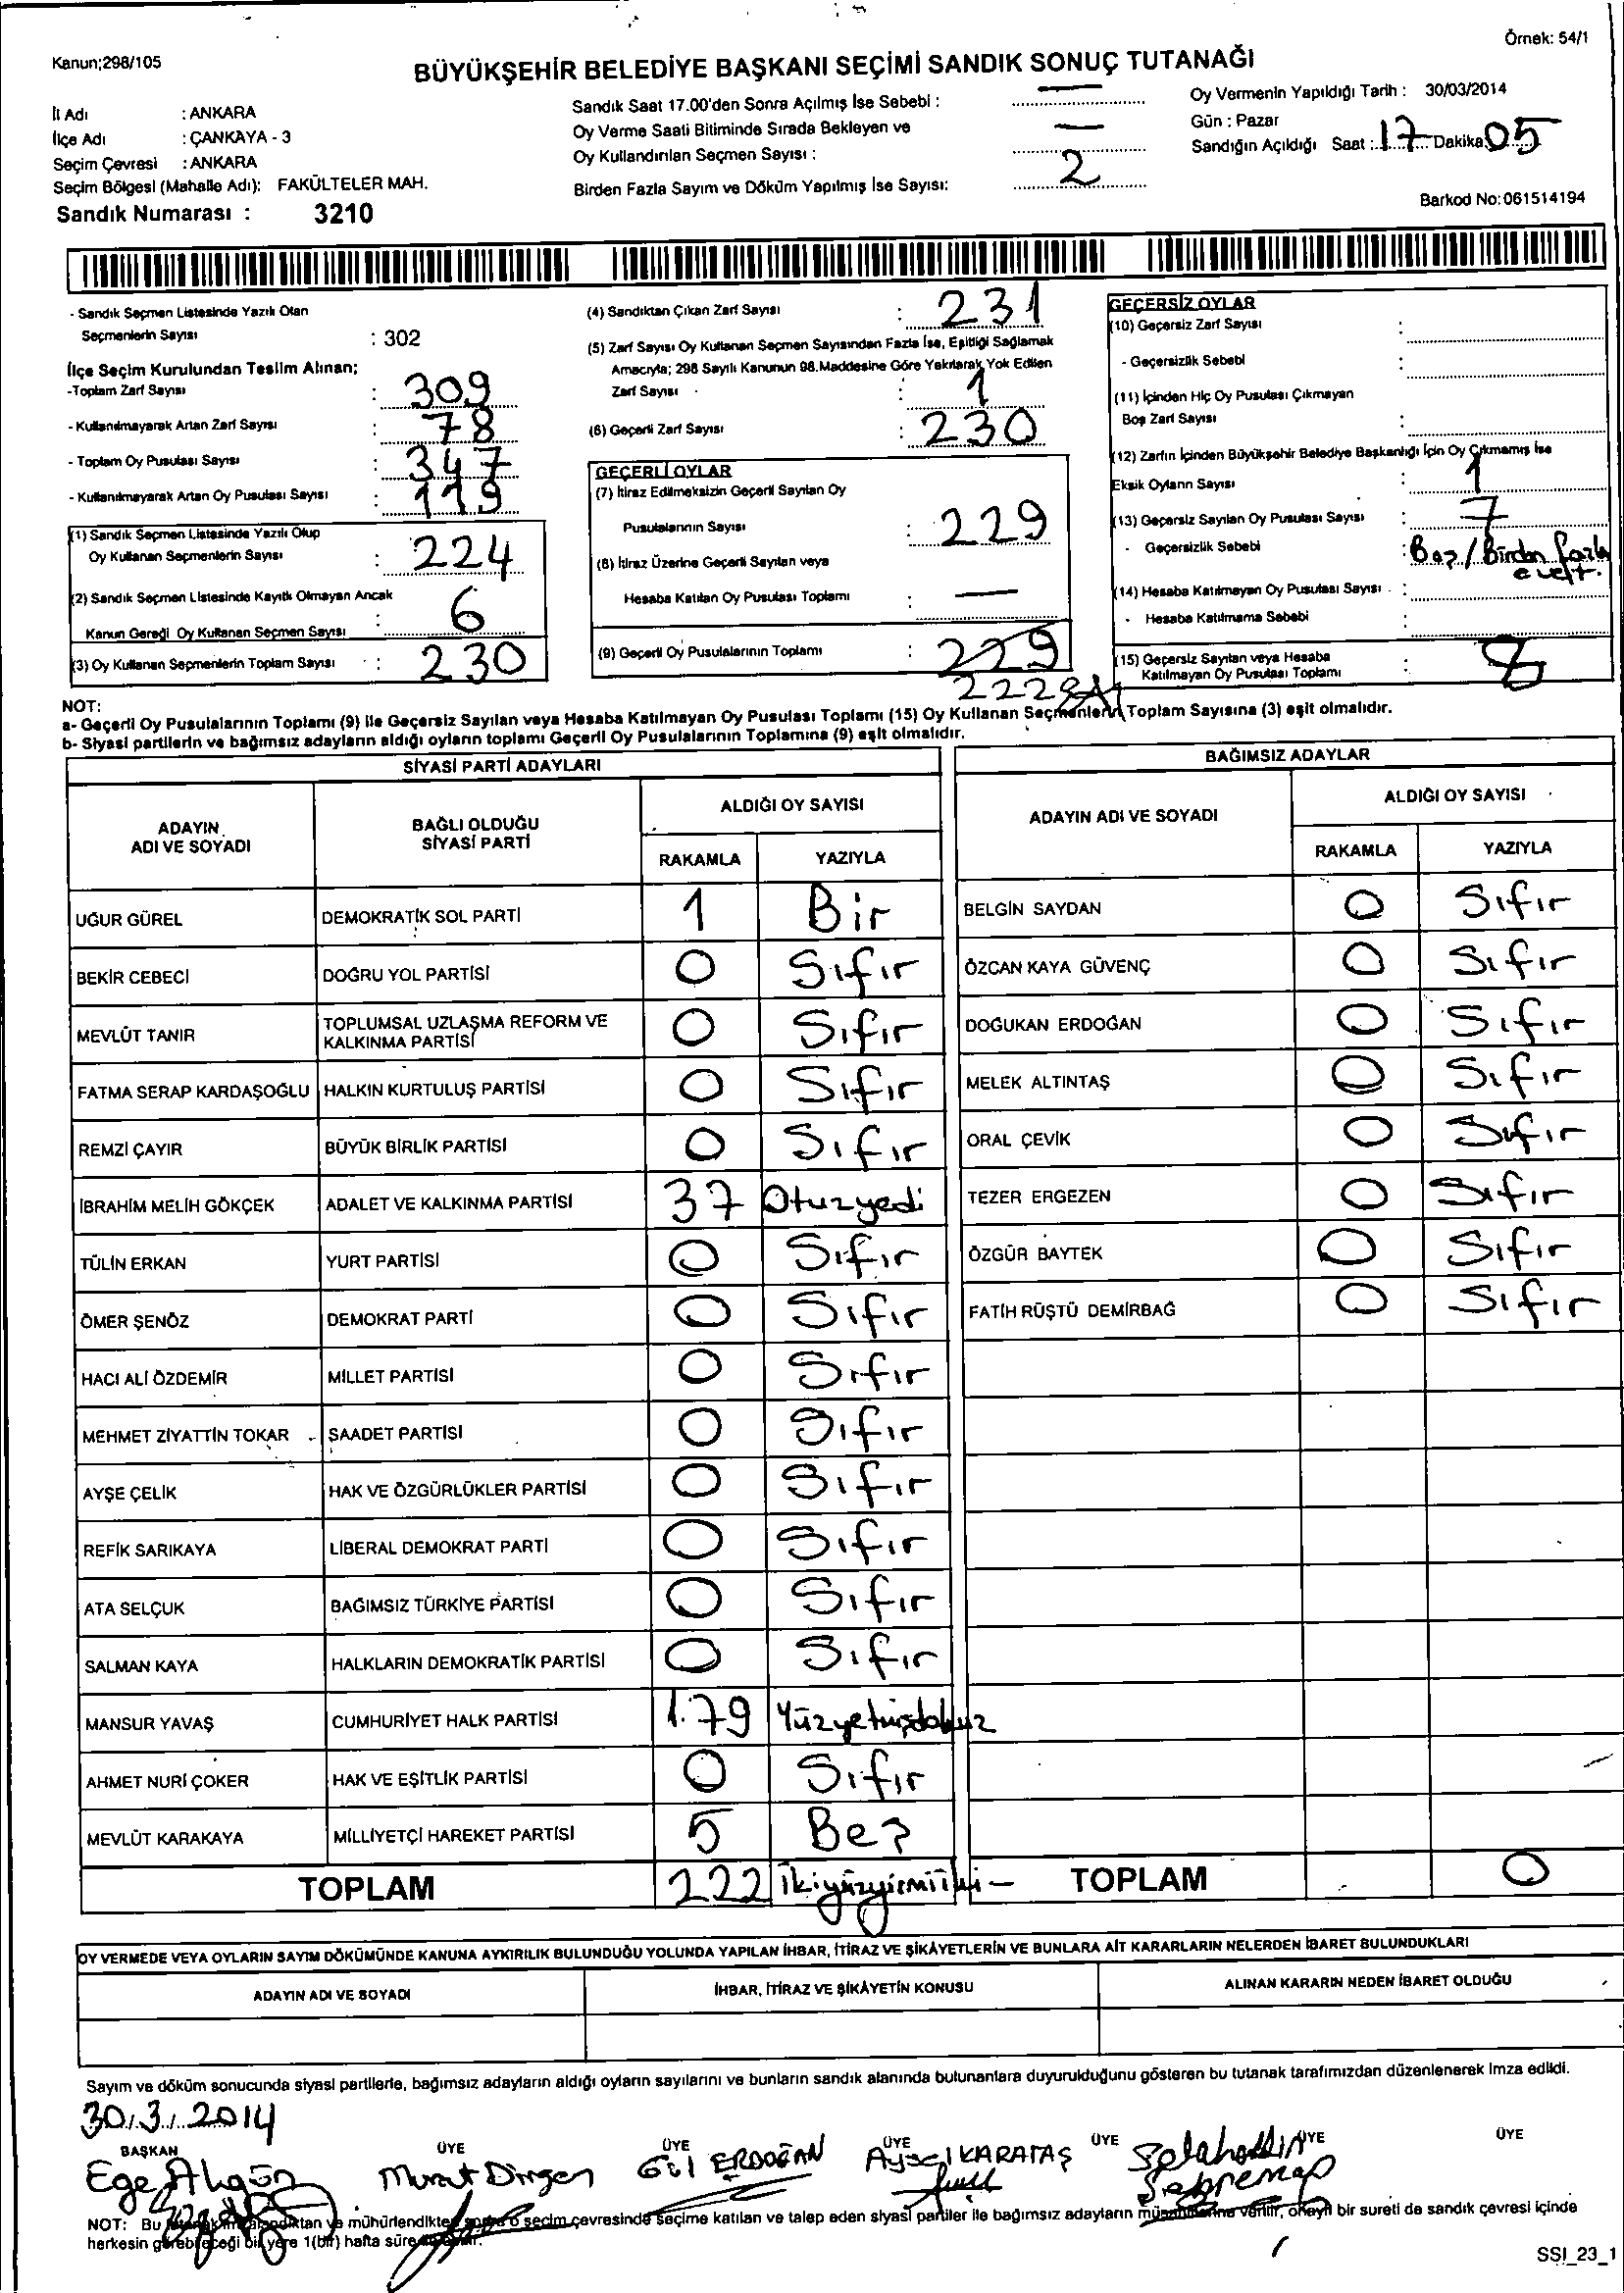 Örnek: 54/1
Kanun;298/105
BÜYÜKŞEHİR BELEDİYE BAŞKANI SEÇİMİ SANDIK SONUÇ TUTANAĞI
İl Adı : ANKARA
İlçe Adı : ÇANKAYA - 3
Seçim Çevresi : ANKARA
Seçim Bölgesi (Mahalle Adı): FAKÜLTELER MAH.
Sandık Numarası : 3210
Sandık Saat 17.00'den Sonra Açılmış İse Sebebi : —
Oy Verme Saati Bitiminde Sırada Bekleyen ve
Oy Kullandırılan Seçmen Sayısı : —
Birden Fazla Sayım ve Döküm Yapılmış İse Sayısı: 2
Oy Vermenin Yapıldığı Tarih : 30/03/2014
Gün : Pazar
Sandığın Açıldığı Saat : 17 Dakika 05
Barkod No:061514194
- Sandık Seçmen Listesinde Yazılı Olan
Seçmenlerin Sayısı : 302
İlçe Seçim Kurulundan Teslim Alınan;
-Toplam Zarf Sayısı : 309
- Kullanılmayarak Artan Zarf Sayısı : 78
- Toplam Oy Pusulası Sayısı : 347
- Kullanılmayarak Artan Oy Pusulası Sayısı : 119
(1) Sandık Seçmen Listesinde Yazılı Olup
Oy Kullanan Seçmenlerin Sayısı : 224
(2) Sandık Seçmen Listesinde Kayıtlı Olmayan Ancak
Kanun Gereği Oy Kullanan Seçmen Sayısı : 6
(3) Oy Kullanan Seçmenlerin Toplam Sayısı : 230
(4) Sandıktan Çıkan Zarf Sayısı : 231
(5) Zarf Sayısı Oy Kullanan Seçmen Sayısından Fazla İse, Eşitliği Sağlamak
Amacıyla; 298 Sayılı Kanunun 98.Maddesine Göre Yakılarak Yok Edilen
Zarf Sayısı : 1
(6) Geçerli Zarf Sayısı : 230
GEÇERLİ OYLAR
(7) İtiraz Edilmeksizin Geçerli Sayılan Oy
Pusulalarının Sayısı : 229
(8) İtiraz Üzerine Geçerli Sayılan veya
Hesaba Katılan Oy Pusulası Toplamı : —
(9) Geçerli Oy Pusulalarının Toplamı : 229
222
GEÇERSİZ OYLAR
(10) Geçersiz Zarf Sayısı :
- Geçersizlik Sebebi :
(11) İçinden Hiç Oy Pusulası Çıkmayan
Boş Zarf Sayısı :
(12) Zarfın İçinden Büyükşehir Belediye Başkanlığı İçin Oy Çıkmamış İse
Eksik Oyların Sayısı : 1
(13) Geçersiz Sayılan Oy Pusulası Sayısı : 7
- Geçersizlik Sebebi : Boş / Birden fazla
evet.
(14) Hesaba Katılmayan Oy Pusulası Sayısı :
- Hesaba Katılmama Sebebi :
(15) Geçersiz Sayılan veya Hesaba
Katılmayan Oy Pusulası Toplamı : 8
NOT:
a- Geçerli Oy Pusulalarının Toplamı (9) ile Geçersiz Sayılan veya Hesaba Katılmayan Oy Pusulası Toplamı (15) Oy Kullanan Seçmenlerin Toplam Sayısına (3) eşit olmalıdır.
b- Siyasi partilerin ve bağımsız adayların aldığı oyların toplamı Geçerli Oy Pusulalarının Toplamına (9) eşit olmalıdır.
SİYASİ PARTİ ADAYLARI
ADAYIN ADI VE SOYADI BAĞLI OLDUĞU SİYASİ PARTİ ALDIĞI OY SAYISI
RAKAMLA YAZIYLA
UĞUR GÜREL DEMOKRATİK SOL PARTİ 1 Bir
BEKİR CEBECİ DOĞRU YOL PARTİSİ 0 Sıfır
MEVLÜT TANIR TOPLUMSAL UZLAŞMA REFORM VE KALKINMA PARTİSİ 0 Sıfır
FATMA SERAP KARDAŞOĞLU HALKIN KURTULUŞ PARTİSİ 0 Sıfır
REMZİ ÇAYIR BÜYÜK BİRLİK PARTİSİ 0 Sıfır
İBRAHİM MELİH GÖKÇEK ADALET VE KALKINMA PARTİSİ 37 Otuzyedi
TÜLİN ERKAN YURT PARTİSİ 0 Sıfır
ÖMER ŞENÖZ DEMOKRAT PARTİ 0 Sıfır
HACI ALİ ÖZDEMİR MİLLET PARTİSİ 0 Sıfır
MEHMET ZİYATTİN TOKAR SAADET PARTİSİ 0 Sıfır
AYŞE ÇELİK HAK VE ÖZGÜRLÜKLER PARTİSİ 0 Sıfır
REFİK SARIKAYA LİBERAL DEMOKRAT PARTİ 0 Sıfır
ATA SELÇUK BAĞIMSIZ TÜRKİYE PARTİSİ 0 Sıfır
SALMAN KAYA HALKLARIN DEMOKRATİK PARTİSİ 0 Sıfır
MANSUR YAVAŞ CUMHURİYET HALK PARTİSİ 179 Yüzyetmişdokuz
AHMET NURİ ÇOKER HAK VE EŞİTLİK PARTİSİ 0 Sıfır
MEVLÜT KARAKAYA MİLLİYETÇİ HAREKET PARTİSİ 5 Beş
TOPLAM 222 ikiyüzyirmiiki
BAĞIMSIZ ADAYLAR
ADAYIN ADI VE SOYADI ALDIĞI OY SAYISI
RAKAMLA YAZIYLA
BELGİN SAYDAN 0 Sıfır
ÖZCAN KAYA GÜVENÇ 0 Sıfır
DOĞUKAN ERDOĞAN 0 Sıfır
MELEK ALTINTAŞ 0 Sıfır
ORAL ÇEVİK 0 Sıfır
TEZER ERGEZEN 0 Sıfır
ÖZGÜR BAYTEK 0 Sıfır
FATİH RÜŞTÜ DEMİRBAĞ 0 Sıfır
TOPLAM 0
OY VERMEDE VEYA OYLARIN SAYIM DÖKÜMÜNDE KANUNA AYKIRILIK BULUNDUĞU YOLUNDA YAPILAN İHBAR, İTİRAZ VE ŞİKÂYETLERİN VE BUNLARA AİT KARARLARIN NELERDEN İBARET BULUNDUKLARI
ADAYIN ADI VE SOYADI İHBAR, İTİRAZ VE ŞİKÂYETİN KONUSU ALINAN KARARIN NEDEN İBARET OLDUĞU
Sayım ve döküm sonucunda siyasi partilerle, bağımsız adayların aldığı oyların sayılarını ve bunların sandık alanında bulunanlara duyurulduğunu gösteren bu tutanak tarafımızdan düzenlenerek imza edildi.
30.3.2014
BAŞKAN ÜYE ÜYE ÜYE ÜYE ÜYE ÜYE
Ege Murat Dingen Gül ERDOĞAN Aysel KARATAŞ Selahattin
NOT: Bu mühürlendikten sonra o seçim çevresinde seçime katılan ve talep eden siyasi partiler ile bağımsız adayların müşahitlerine verilir, onaylı bir sureti de sandık çevresi içinde
herkesin görebileceği bir yere 1(bir) hafta süre
SSİ_23_1